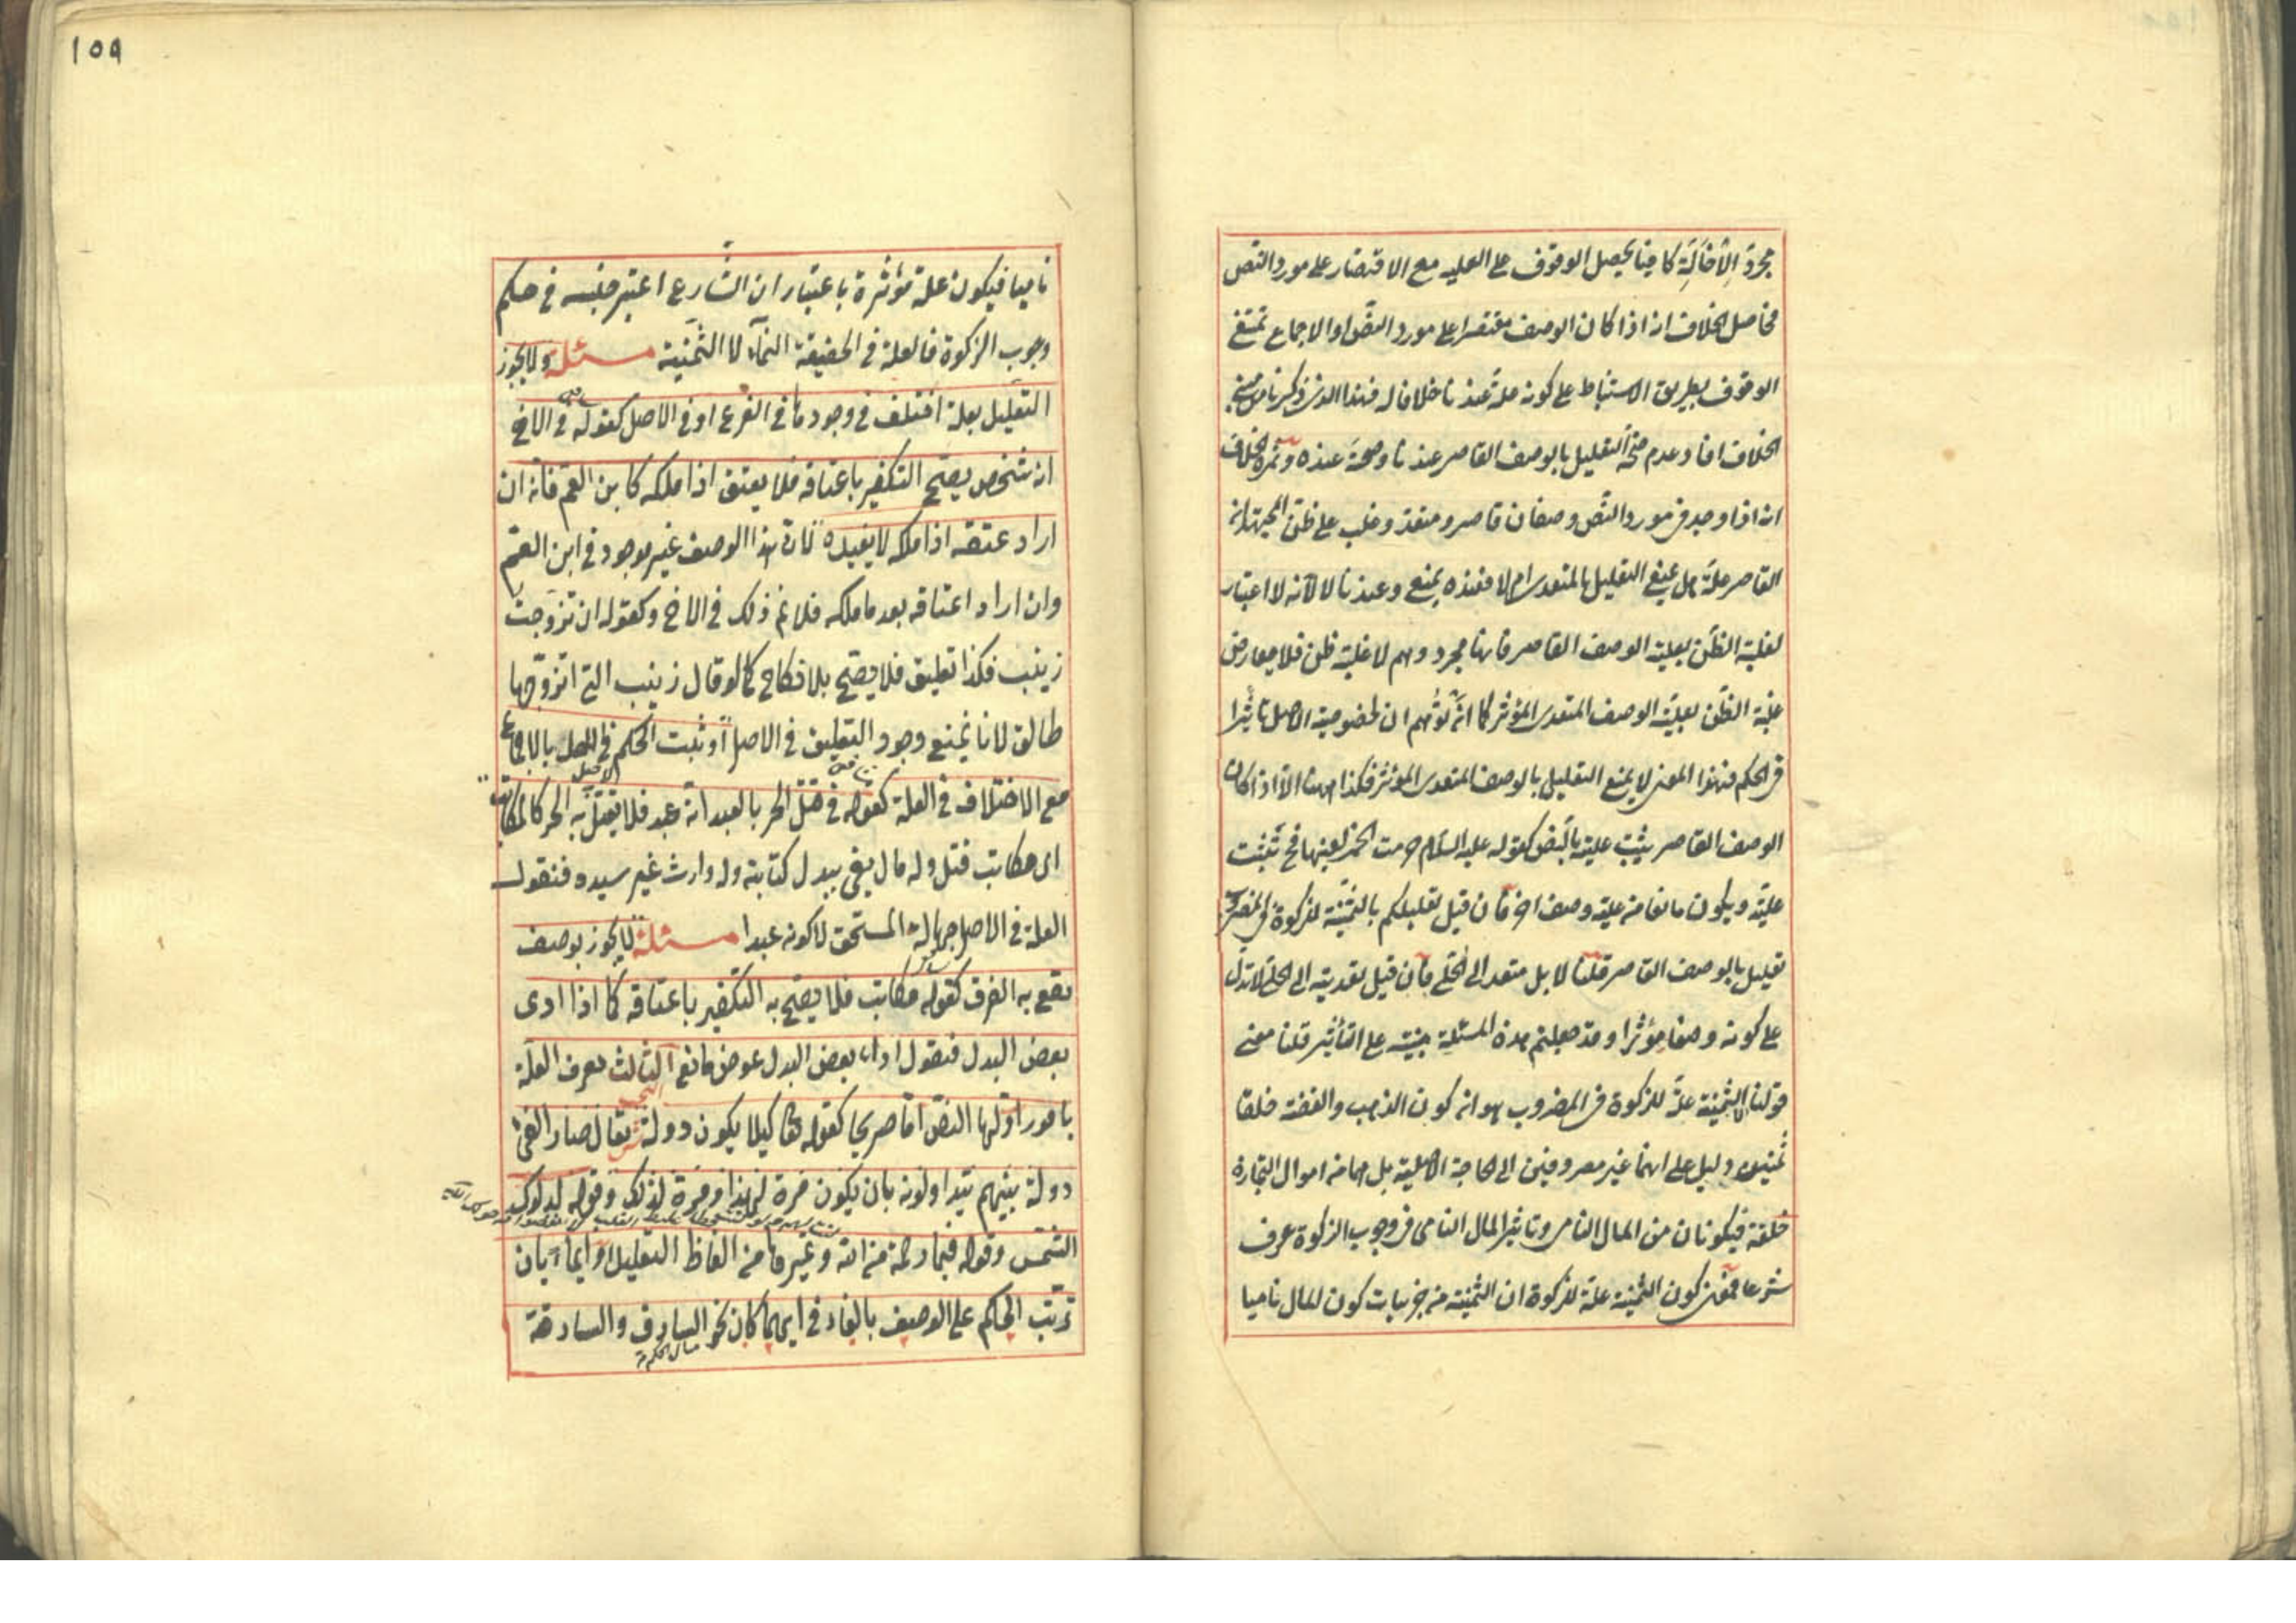 مجرد الاخالة كافيا يحصل الوقوف على العلية مع الاقتصار على مورد النص
فحاصل الخلاف انه اذا كان الوصف مقتصرا على مورد النص او الاجماع تمتنع
الوقوف بطريق الاستنباط على كونه علة عندنا خلافا له فهذا الذي ذكرنا من مبنى
الخلاف افاد عدم صحة التعليل بالوصف القاصر عندنا وصحته عنده وثمرة الخلاف
انه اذا وجد فى مورد النص وصفان قاصر ومتعد وغلب على ظن المجتهد انه
القاصر علة هل يمنع التعليل بالمتعدى ام لا فعنده يمنع وعندنا لا لانه لا اعتبار
لغلبة الظن بعلية الوصف القاصر فانها مجرد وهم لا غلبة ظن فلا يعارض
غلبة الظن بعلية الوصف المتعدى المؤثر كما انه توهم ان لخصوصية الاصل تاثيرا
فى الحكم فهذا المعنى لا يمنع التعليل بالوصف المتعدى المؤثر فكذا ههنا الا اذا كان
الوصف القاصر يثبت عليته بالنص كقوله عليه السلام حرمت الخمر لعينها فح تثبت
عليته ويكون مانعا من علية وصف اخر فان قيل تعليلكم بالثمنية للزكوة فى المضروب
تعليل بالوصف القاصر قلنا لا بل متعد الى الحلي فان قيل تعديته الى الحلي لا تدل
على كونه وصفا مؤثرا وقد جعلتم هذه المسئلة مبنية على التأثير قلنا معنى
قولنا الثمنية علة للزكوة فى المضروب هو انه كون الذهب والفضة خلقا
ثمنين دليل على انهما غير مصروفين الى الحاجة الاصلية بل هما من اموال التجارة
خلقة فيكونان من المال النامى وتاثير المال النامى فى وجوب الزكوة عرف
شرعا فمعنى كون الثمنية علة للزكوة ان الثمنية من جزئيات كون المال ناميا
١٥٩
ناميا فيكون علة مؤثرة باعتبار ان الشارع اعتبر جنسه فى حكم
وجوب الزكوة فالعلة فى الحقيقة النمآء لا الثمنية مسئلة ولا يجوز
التعليل بعلة اختلف فى وجودها فى الفرع او فى الاصل كقوله فى الاخ
انه شخص يصح التكفير باعتاقه فلا يعتق اذا ملكه كابن العم فانه ان
اراد عتقه اذا ملكه لا يفيده لان هذا الوصف غير موجود فى ابن العم
وان اراد اعتاقه بعد ما ملكه فلا نم ذلك فى الاخ وكقوله ان تزوجت
زينب فكذا تعليق فلا يصح بلا نكاح كما لو قال زينب التى اتزوجها
طالق لانا نمنع وجود التعليق فى الاصل او ثبت الحكم فى الاصل بالاجماع
مع الاختلاف فى العلة كقوله فى قتل الحر بالعبد انه عبد فلا يقتل به الحر كالمكاتب
اى مكاتب قتل وله مال يفى ببدل كتابته وله وارث غير سيده فنقول
العلة فى الاصل جهالة المستحق لا كونه عبدا مسئلة لا يجوز بوصف
يقع به الفرق كقوله مكاتب فلا يصح به التكفير باعتاقه كما اذا ادى
بعض البدل فنقول اداء بعض البدل عوض مانع الثالث يعرف العلة
بامور اولها النص اما صريحا كقوله تعا كيلا يكون دولة يقال صار الفئ
دولة بينهم يتداولونه بان يكون مرة لهذا ومرة لذلك وقوله لدلوك
الشمس وقوله فبما رحمة من الله وغيرها من الفاظ التعليل او ايمآء بان
ترتب الحكم على الوصف بالفاء فى ايهما كان نحو السارق والسارقة
مثال الحكم